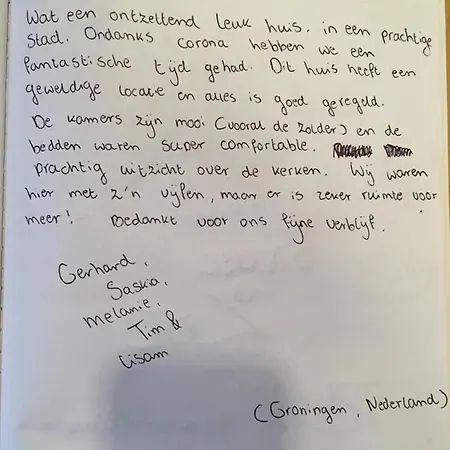 Wat een ontzettend leuk huis, in een prachtige
stad. Ondanks corona hebben we een
fantastische tijd gehad. Dit huis heeft een
geweldige locatie en alles is goed geregeld.
De kamers zijn mooi (vooral de zolder) en de
bedden waren super comfortable.
prachtig uitzicht over de kerken. Wij waren
hier met z'n vijfen, maar er is zeker ruimte voor
meer! Bedankt voor ons fijne verblijf.
Gerhard,
Saskia,
melanie,
Tim &
Lisam
(Groningen, Nederland)